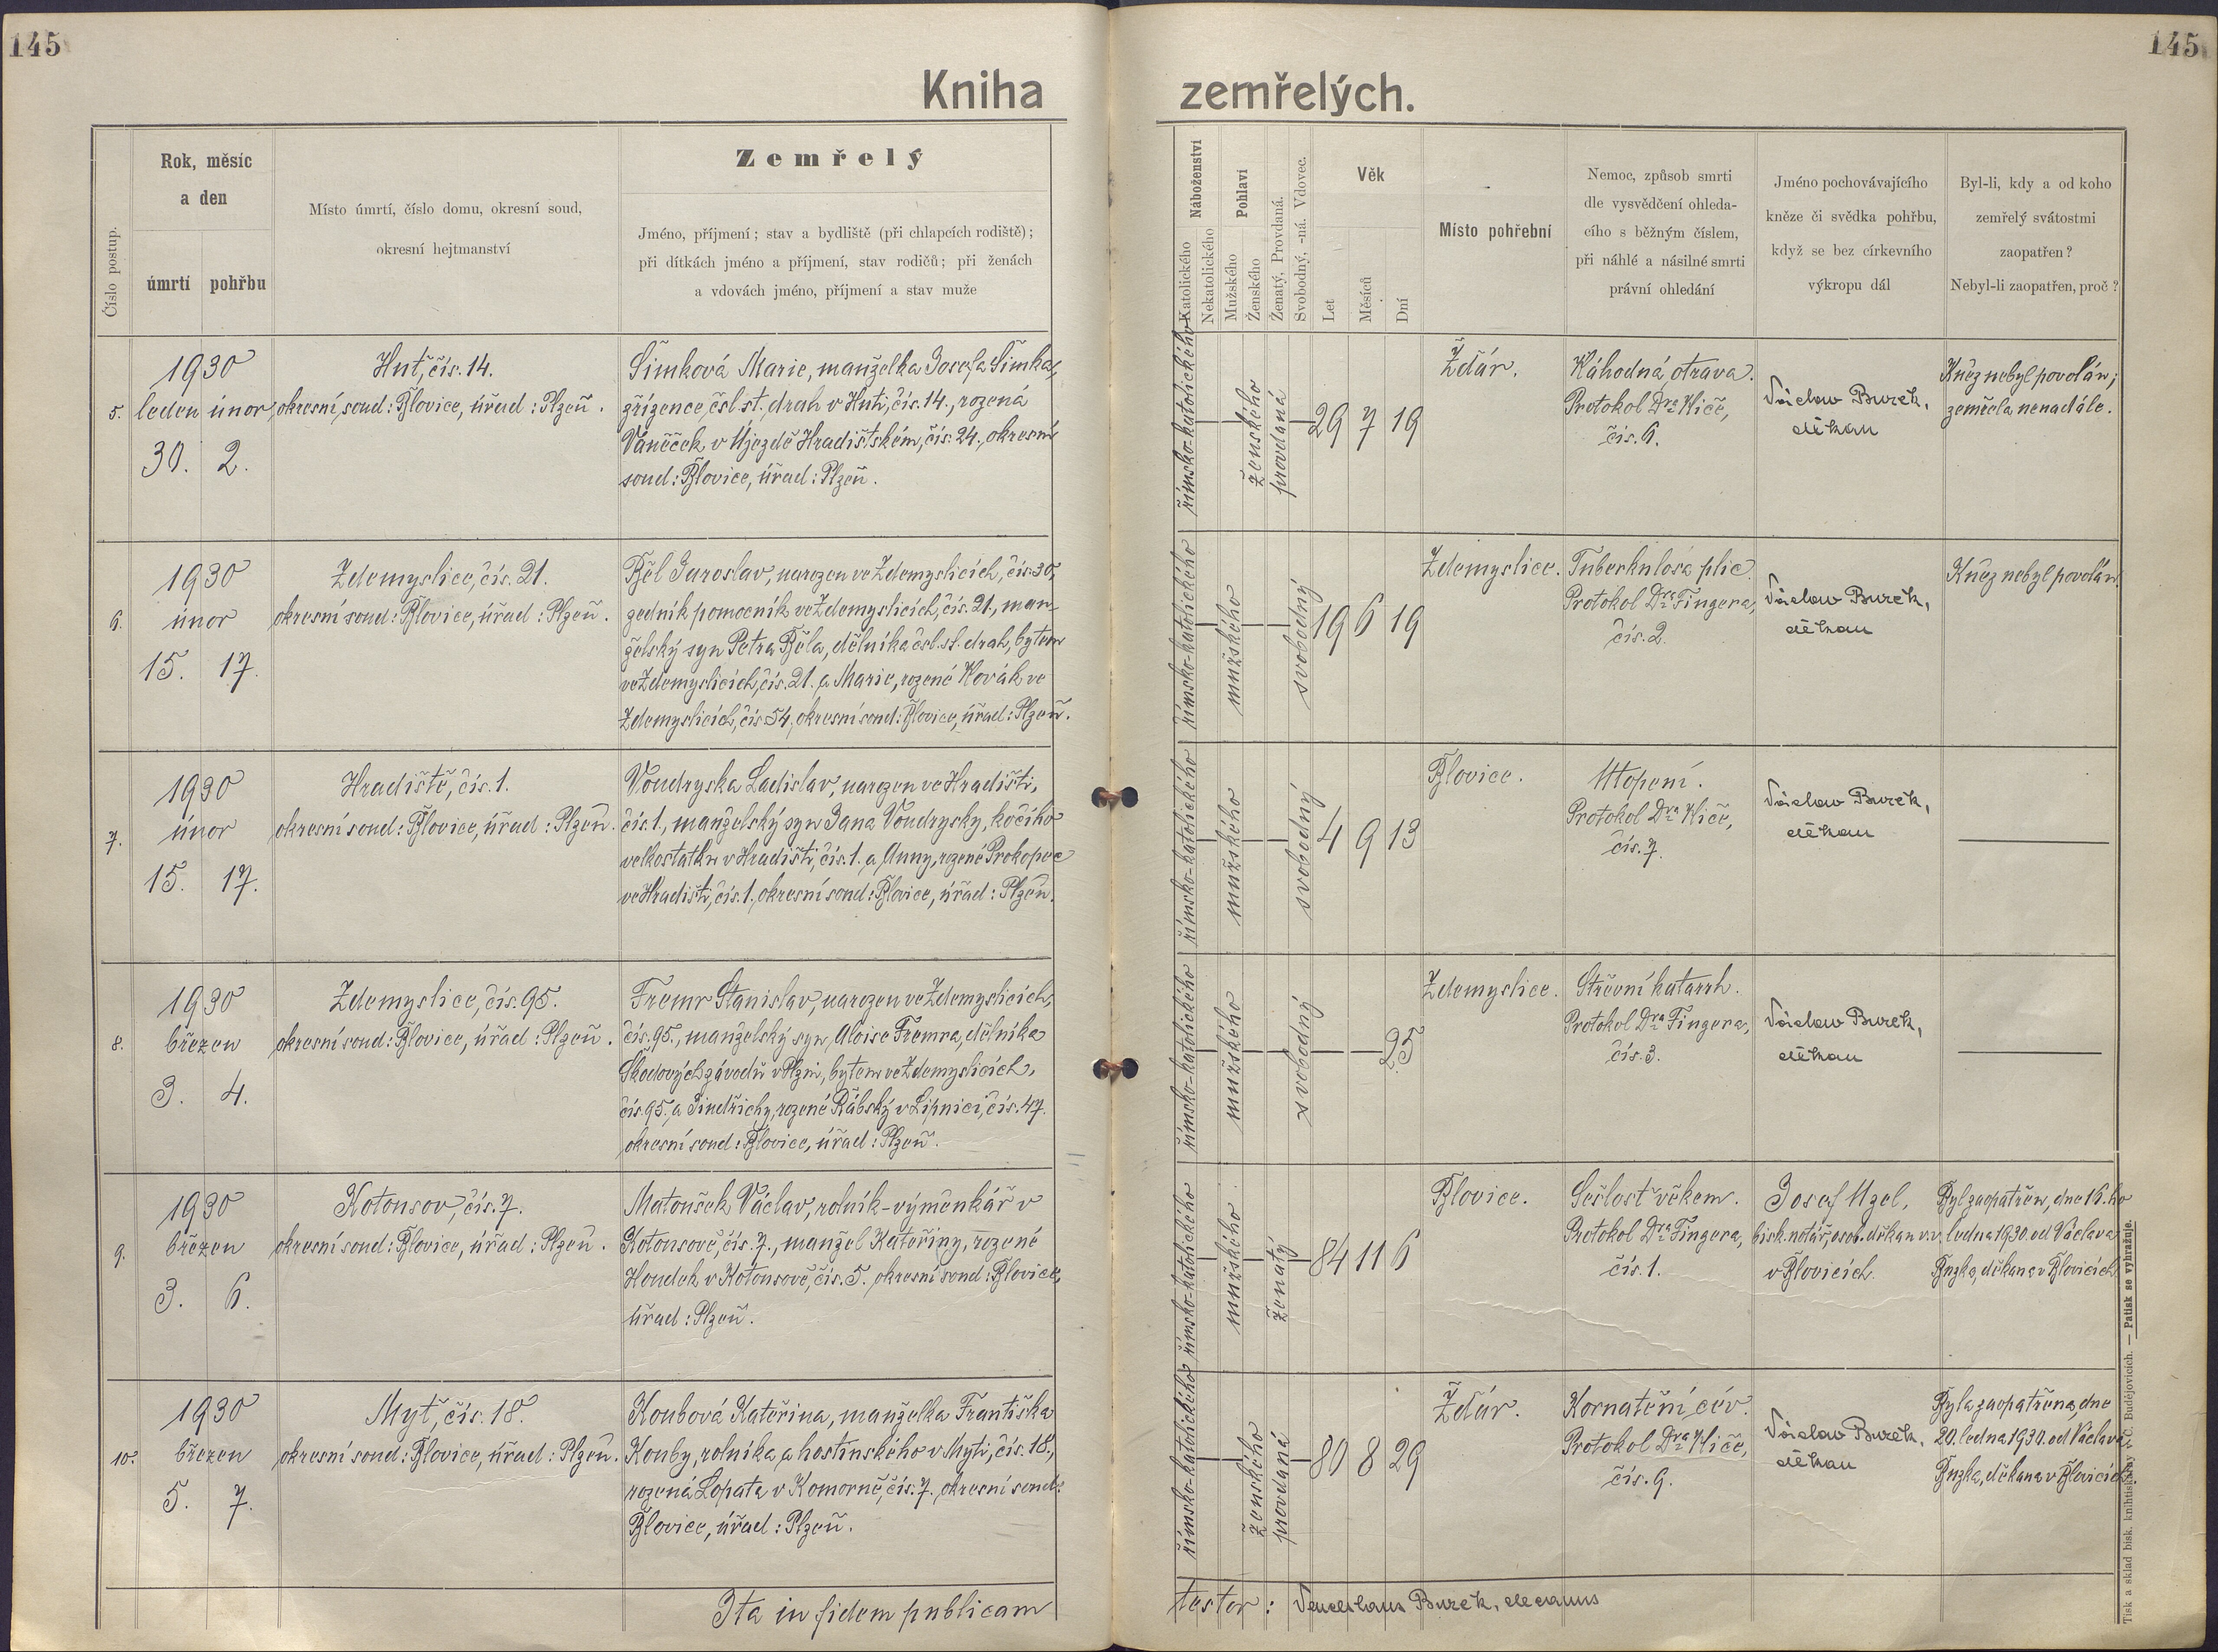 145
145
Kniha zemřelých.
Číslo postup.
Rok, měsíc
a den
úmrtí
pohřbu
Místo úmrtí, číslo domu, okresní soud,
okresní hejtmanství
Zemřelý
Jméno, příjmení; stav a bydliště (při chlapcích rodiště);
při dítkách jméno a příjmení, stav rodičů; při ženách
a vdovách jméno, příjmení a stav muže
Náboženství
Katolického
Nekatolického
Pohlaví
Mužského
Ženského
Ženatý, Provdaná.
Svobodný, -ná. Vdovec.
Věk
Let
Měsíců
Dní
Místo pohřební
Nemoc, způsob smrti
dle vysvědčení ohleda-
cího s běžným číslem,
při náhlé a násilné smrti
právní ohledání
Jméno pochovávajícího
kněze či svědka pohřbu,
když se bez církevního
výkropu dál
Byl-li, kdy a od koho
zemřelý svátostmi
zaopatřen?
Nebyl-li zaopatřen, proč?
5.
1930
leden únor
30. 2.
Huť, čís. 14.
okresní soud: Blovice, úřad: Plzeň.
Šimková Marie, manželka Josefa Šimka,
zřízence čsl. st. drah v Huti, čís. 14., rozená
Váněček v Újezdě Hradištském, čís. 24., okresní
soud: Blovice, úřad: Plzeň.
římsko-katolického
ženského
provdaná
29 7 19
Ždár.
Náhodná otrava.
Protokol Dra Kliče,
čís. 6.
Václav Burek,
děkan
Kněz nebyl povolán;
zemřela nenadále.
6.
1930
únor
15. 17.
Zdemyslice, čís. 21.
okresní soud: Blovice, úřad: Plzeň.
Běl Jaroslav, narozen ve Zdemyslicích, čís. 30,
zedník pomocník ve Zdemyslicích, čís. 21., man-
želský syn Petra Běla, dělníka čsl. st. drah, bytem
ve Zdemyslicích, čís. 21. a Marie, rozené Novák ve
Zdemyslicích, čís 54, okresní soud: Blovice, úřad: Plzeň.
římsko-katolického
mužského
svobodný
19 6 19
Zdemyslice.
Tuberkulosa plic.
Protokol Dra Fingera,
čís. 2.
Václav Burek,
děkan
Kněz nebyl povolán.
7.
1930
únor
15. 17.
Hradiště, čís. 1.
okresní soud: Blovice, úřad: Plzeň.
Voudryska Ladislav, narozen ve Hradišti,
čís. 1., manželský syn Jana Voudrysky, kočího
velkostatku v Hradišti, čís. 1. a Anny, rozené Prokopec
ve Hradišti, čís. 1. okresní soud: Blovice, úřad: Plzeň.
římsko-katolického
mužského
svobodný
4 9 13
Blovice.
Utopení.
Protokol Dra Kliče,
čís. 7.
Václav Burek,
děkan
8.
1930
březen
3. 4.
Zdemyslice, čís. 95.
okresní soud: Blovice, úřad: Plzeň.
Fremr Stanislav, narozen ve Zdemyslicích,
čís. 95., manželský syn Aloise Fremra, dělníka
Škodových závodů v Plzni, bytem ve Zdemyslicích,
čís. 95., a Jindřichy, rozené Rábský v Lipnici, čís. 47.
okresní soud: Blovice, úřad: Plzeň.
římsko-katolického
mužského
svobodný
25
Zdemyslice.
Střevní katarrh.
Protokol Dra Fingera,
čís. 3.
Václav Burek,
děkan
9.
1930
březen
3. 6.
Kotousov, čís. 7.
okresní soud: Blovice, úřad: Plzeň.
Matoušek Václav, rolník-výměnkář v
Kotousově, čís. 7., manžel Kateřiny, rozené
Houdek v Kotousově, čís. 5. okresní soud: Blovice,
úřad: Plzeň.
římsko-katolického
mužského
ženatý
84 11 6
Blovice.
Sešlost věkem.
Protokol Dra Fingera,
čís. 1.
Josef Uzel,
bisk. notář, osob. děkan v.v.
v Blovicích.
Byl zaopatřen, dne 16. ho
ledna 1930. od Václava
Burka, děkana v Blovicích
10.
1930
březen
5. 7.
Myť, čís. 18.
okresní soud: Blovice, úřad: Plzeň.
Koubová Kateřina, manželka Františka
Kouby, rolníka a hostinského v Myti, čís. 18.,
rozená Lopata v Komorně, čís. 7. okresní soud:
Blovice, úřad: Plzeň.
římsko-katolického
ženského
provdaná
80 8 29
Ždár.
Kornatění cév.
Protokol Dra Kliče,
čís. 9.
Václav Burek,
děkan
Byla zaopatřena, dne
20. ledna 1930. od Václava
Burka, děkana v Blovicích.
Ita in fidem publicam testor: Venceslaus Burek, decanus
Tisk a sklad bisk. knihtiskárny v Č. Budějovicích. — Patisk se vyhražuje.